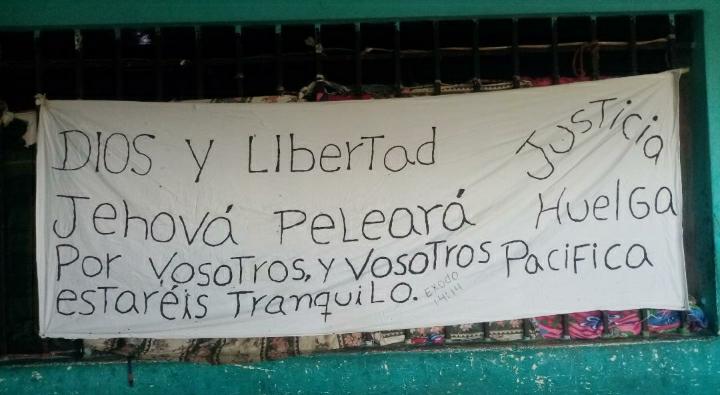 DIOS y LIberTad
JusTicia
Jehová PeLeará
HuelGa
Por VosoTros, y VosoTros
PaciFica
esTaréis TranquiLo.
EXODO
14:14